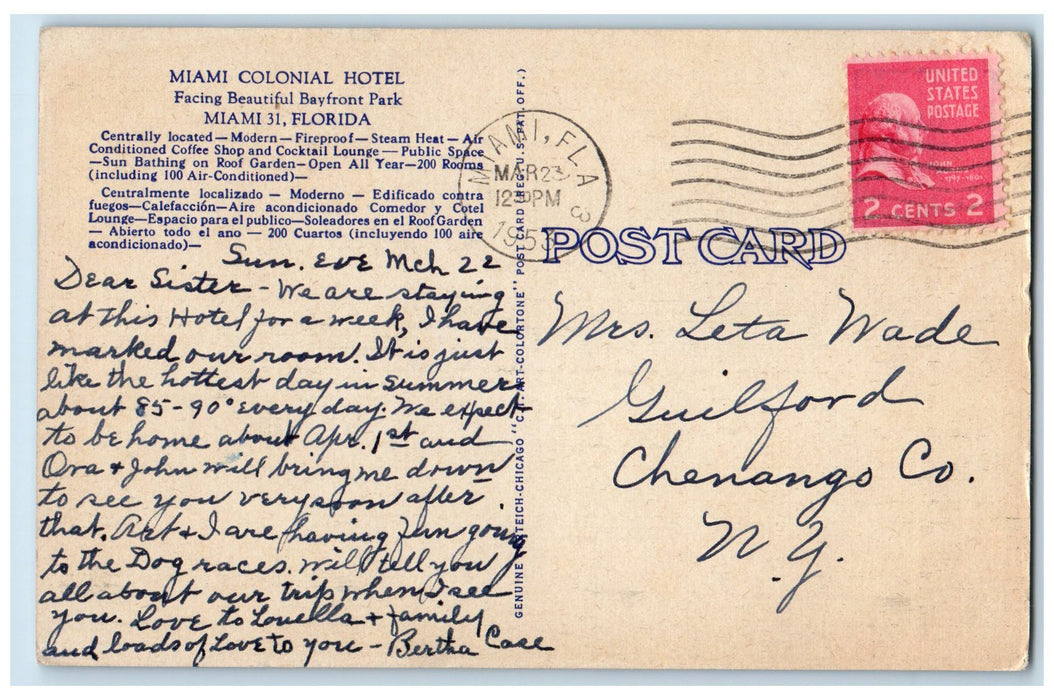 MIAMI COLONIAL HOTEL
Facing Beautiful Bayfront Park
MIAMI 31, FLORIDA
Centrally located — Modern — Fireproof — Steam Heat — Air
Conditioned Coffee Shop and Cocktail Lounge — Public Space
—Sun Bathing on Roof Garden—Open All Year—200 Rooms
(including 100 Air-Conditioned)—
Centralmente localizado — Moderno — Edificado contra
fuegos—Calefacción—Aire acondicionado Comedor y Cotel
Lounge—Espacio para el publico—Soleadores en el Roof Garden
— Abierto todo el ano — 200 Cuartos (incluyendo 100 aire
acondicionado)—
Sun. Eve Mch 22
Dear Sister - We are staying
at this Hotel for a week, I have
marked our room. It is just
like the hottest day in summer
about 85-90° every day. We expect
to be home about Apr. 1st and
Ora + John will bring me down
to see you very soon after
that. Art + I are having fun going
to the Dog races. Will tell you
all about our trip when I see
you. Love to Louella + family
and loads of Love to you - Bertha Case
GENUINE CURTEICH-CHICAGO "C.T. ART-COLORTONE" POST CARD (REG. U.S. PAT. OFF.)
MIAMI, FLA
MAR 23
12 PM
195
POST CARD
UNITED
STATES
POSTAGE
JOHN
2 CENTS 2
Mrs. Leta Wade
Guilford
Chenango Co.
N.Y.